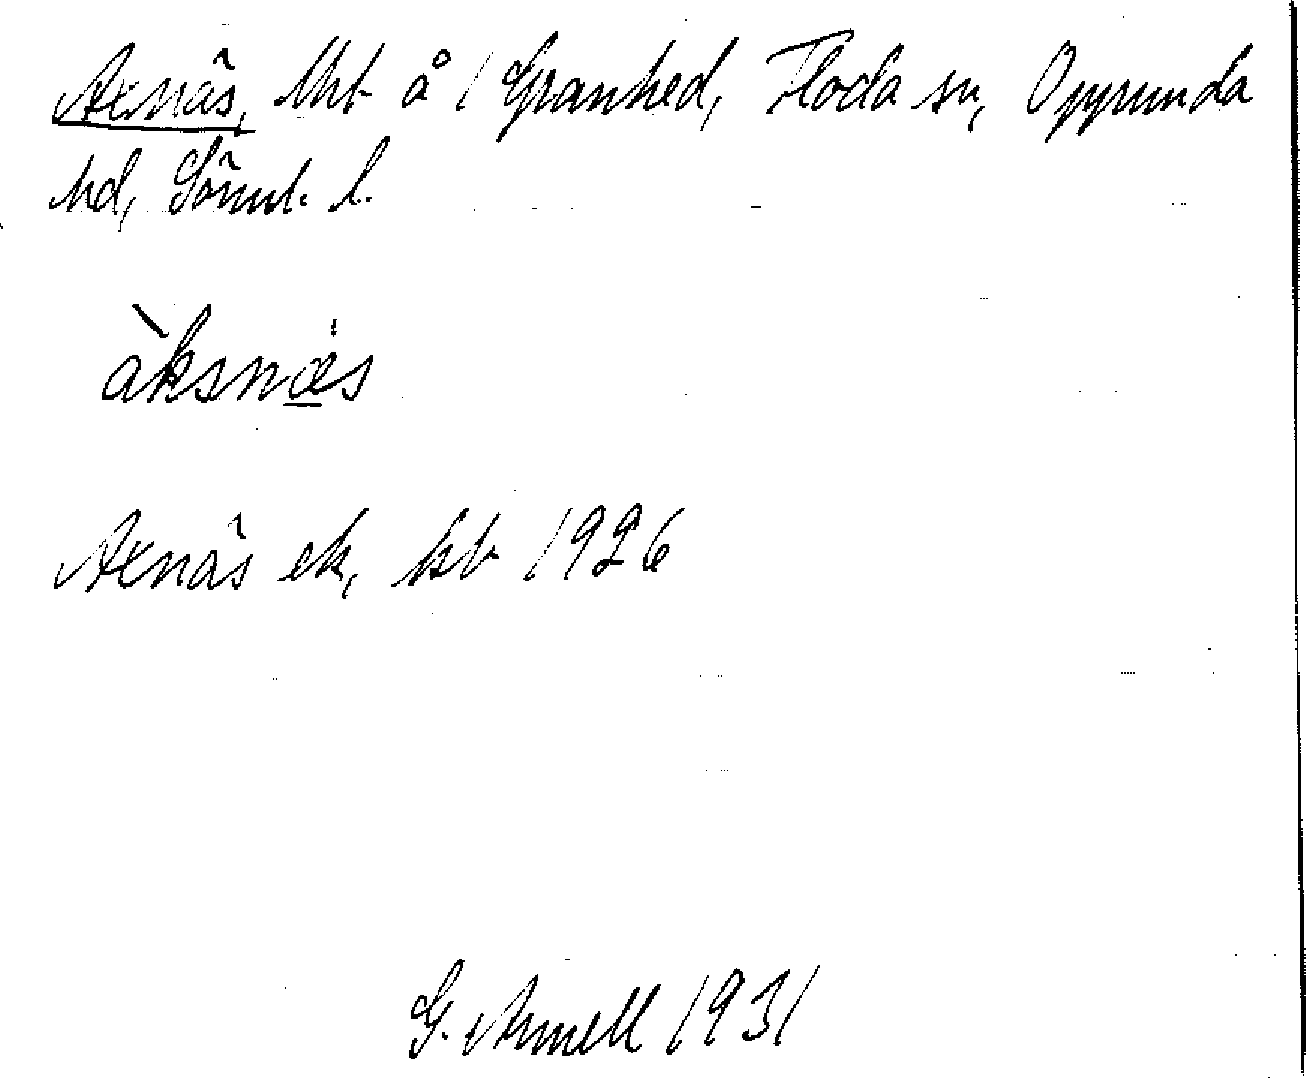 Axnäs, lht å 1 Granhed, Floda sn, Oppunda
hd, Södml. l.
àksnæs
Axnäs ek, kb 1926
G. Arnell 1931